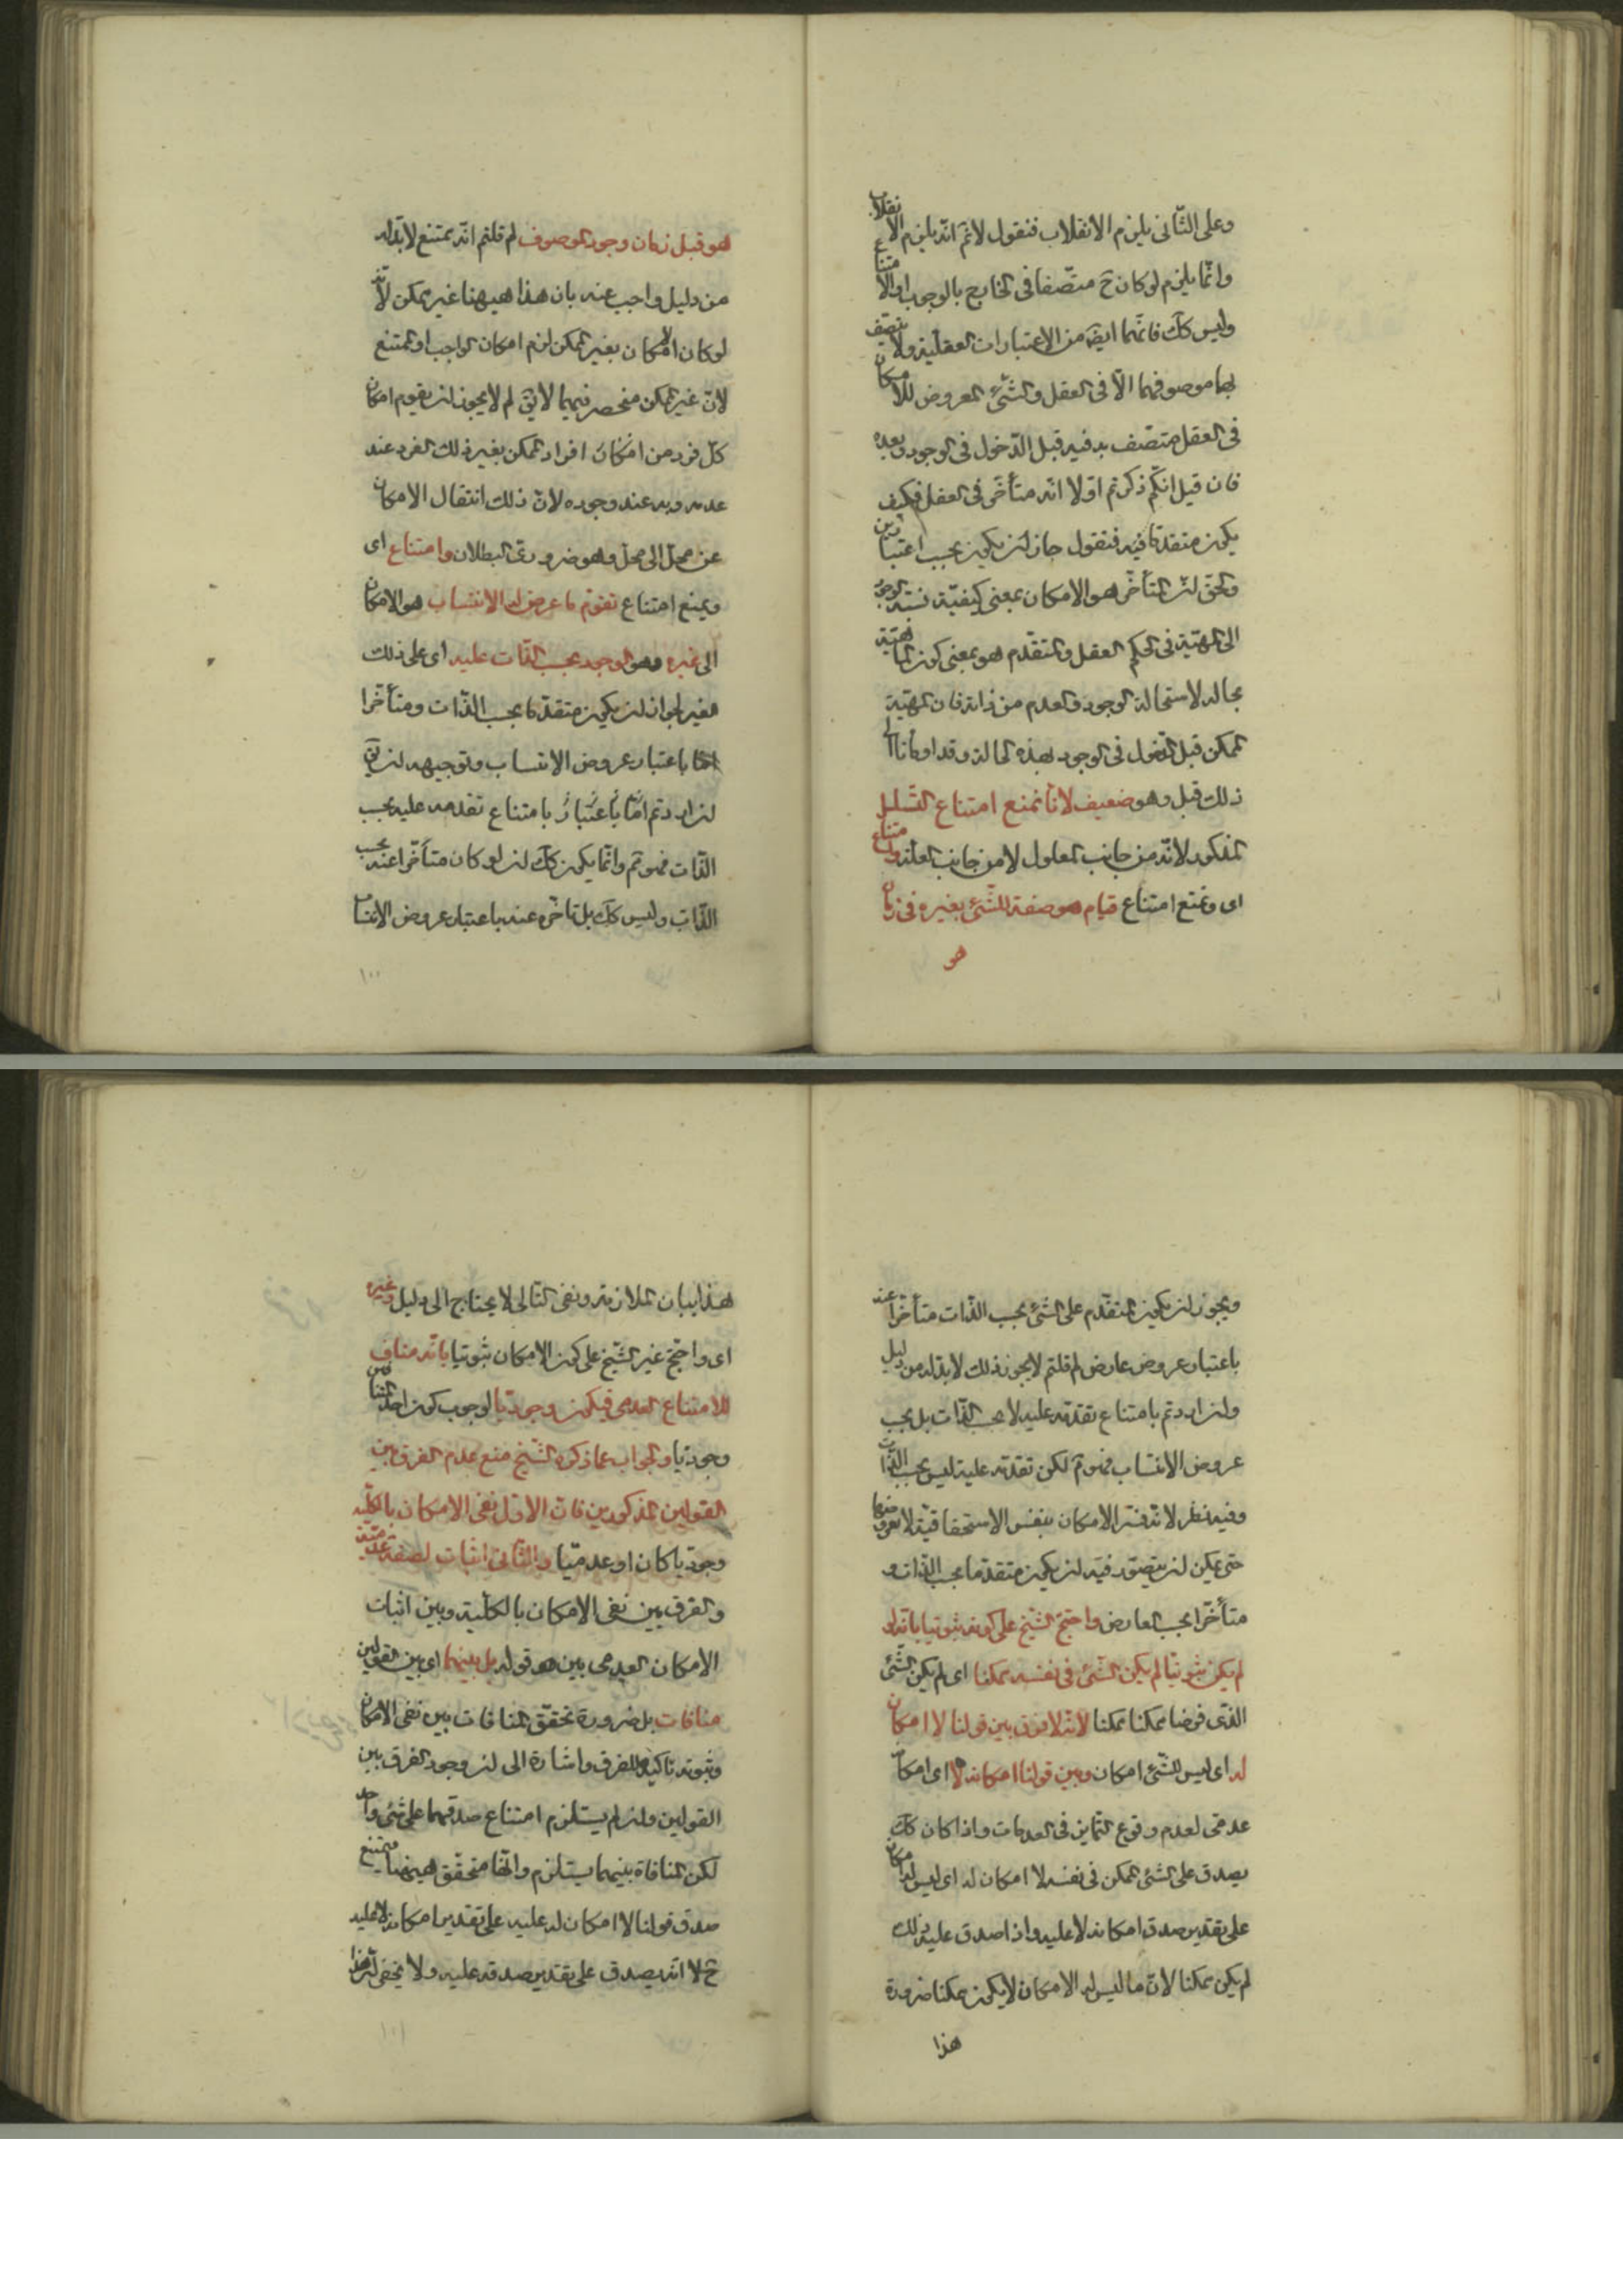 وعلى الثّانى يلزم الانقلاب فنقول لا نمّ انّه يلزم الانقلاب
وانّما يلزم لو كان ح متّصفا فى الخارج بالوجوب او الامتناع
وليس كك فانّهما ايضَ من الاعتبارات العقليّة ولا يتصّف
بها موصوفهما الّا فى العقل والشّئ المعروض للامكان
فى العقل متصّف به فيه قبل الدّخول فى الوجود وبعده
فان قيل انّكم ذكرتم اوّلا انّه متأخّر فى العقل فكيف
يكون متقدّما فيه فنقول جاز ان يكون بحسب اعتبارين
والحق ان المتأخّر هو الامكان بمعنى كيفيّة نسبة الوجود
الى المهيّة فى الحكم العقل والمتقدّم هو بمعنى كون المهيّة
بحالة لا استحالة الوجود والعدم من ذاته فان المهيّة
الممكن قبل الدّخول فى الوجود بهذه الحالة وقد اومأنا الى
ذلك قبل وهو ضعيف لانا نمنع امتناع التسلسل
المذكور لانّه من جانب المعلول لا من جانب العلّة وامتناع
اى ونمنع امتناع قيام هو صفة للشّئ بغيره فى زمان
هو
هو قبل زمان وجود الموصوف لم قلتم انّه يمتنع لا بدّ له
من دليل واجيب عنه بان هذا هيهنا غير ممكن لانّه
لو كان الامكان بغير الممكن لزم امكان الواجب او الممتنع
لانّ غير الممكن منحصر فيهما لا يقَ لم لا يجوز ان يقوم امكان
كلّ فرد من امكان افراد الممكن بغير ذلك الفرد عند
عدمه وبه عند وجوده لانّ ذلك انتقال الامكان
عن محلّ الى محلّ وهو ضرورىّ البطلان وامتناع اى
ويمنع امتناع تقوّم ما عرض له الانتساب هو الامكان
الى غيره وهو الوجود بحسب الذّات عليه اى على ذلك
الغير لجواز ان يكون متقدّما بحسب الذّات ومتأخّرا
باعتبار عروض الانتساب وتوجيهه ان يقَ
ان اردتم بامتناع تقدمه عليه بحسب
الذّات فهو تم وانّما يكون كك ان لو كان متأخّرا عنه بحسب
الذّات وليس كك بل تاخّره عنه باعتبار عروض الانتساب
١٠٠
ويجوز ان يكون المتقدّم على الشّئ بحسب الذّات متأخّرا عنه
باعتبار عروض عارض لم قلتم لا يجوز ذلك لا بدّ له من دليل
وان اردتم بامتناع تقدّمه عليه لا بحسب الذّات بل بحسب
عروض الانتساب فهو تم لكن تقدّمه عليه ليس بحسب الذّات
وفيه نظر لانّه فسّر الامكان بنفس الاستحقاقيّة لا بعروضها
حتى يمكن ان يتصوّر فيه ان يكون متقدما بحسب الذّات و
متأخّرا بحسب العارض واحتجّ الشّيخ على كونه ثبوتيا بانّه لو
لم يكن ثبوتيّا لم يكن الشّئ فى نفسه ممكنا اى لم يكن الشّئ
الذّى فرضنا ممكنا ممكنا لانّه لا فرق بين قولنا لا امكان
له اى ليس للشّئ امكان وبين قولنا امكانه لا اى امكانه
عدمىّ لعدم وقوع التّمايز فى العدمات واذا كان كك
يصدق على الشّئ الممكن فى نفسه لا امكان له اى ليس له امكان
على تقدير صدق امكانه لا عليه واذا صدق عليه ذلك
لم يكن ممكنا لانّ ما ليس له الامكان لا يكون ممكنا ضرورة
هذا
هذا بيان الملازمة ونفى التّالى لا يحتاج الى دليل وغيره
اى واحتجّ غير الشّيخ على كون الامكان ثبوتيا بانّه مناف
للامتناع العدمى فيكون وجوديّا لوجوب كون احد المتنافيين
وجوديّا والجواب عما ذكره الشّيخ منع عدم الفرق بين
القولين المذكورين فان الاوّل نفى الامكان بالكليّة
وجوديّا كان او عدميّا والثّانى اثبات لصفة عدميّة
والفرق بين نفى الامكان بالكليّة وبين اثبات
الامكان العدمى بين هو قوله بل بينهما اى بين القولين
منافات بل ضرورة تحقّق المنافات بين نفى الامكان
وثبوته تاكيد للفرق واشارة الى ان وجود الفرق بين
القولين وان لم يستلزم امتناع صدقهما على شئ واحد
لكن المنافاة بينهما يستلزم وانّها متحقّق هيهنا فيمتنع
صدق قولنا لا امكان له عليه على تقدير امكانه لا عليه
لا انّه يصدق على تقدير صدقه عليه ولا يخفى ان هذا
١٠١